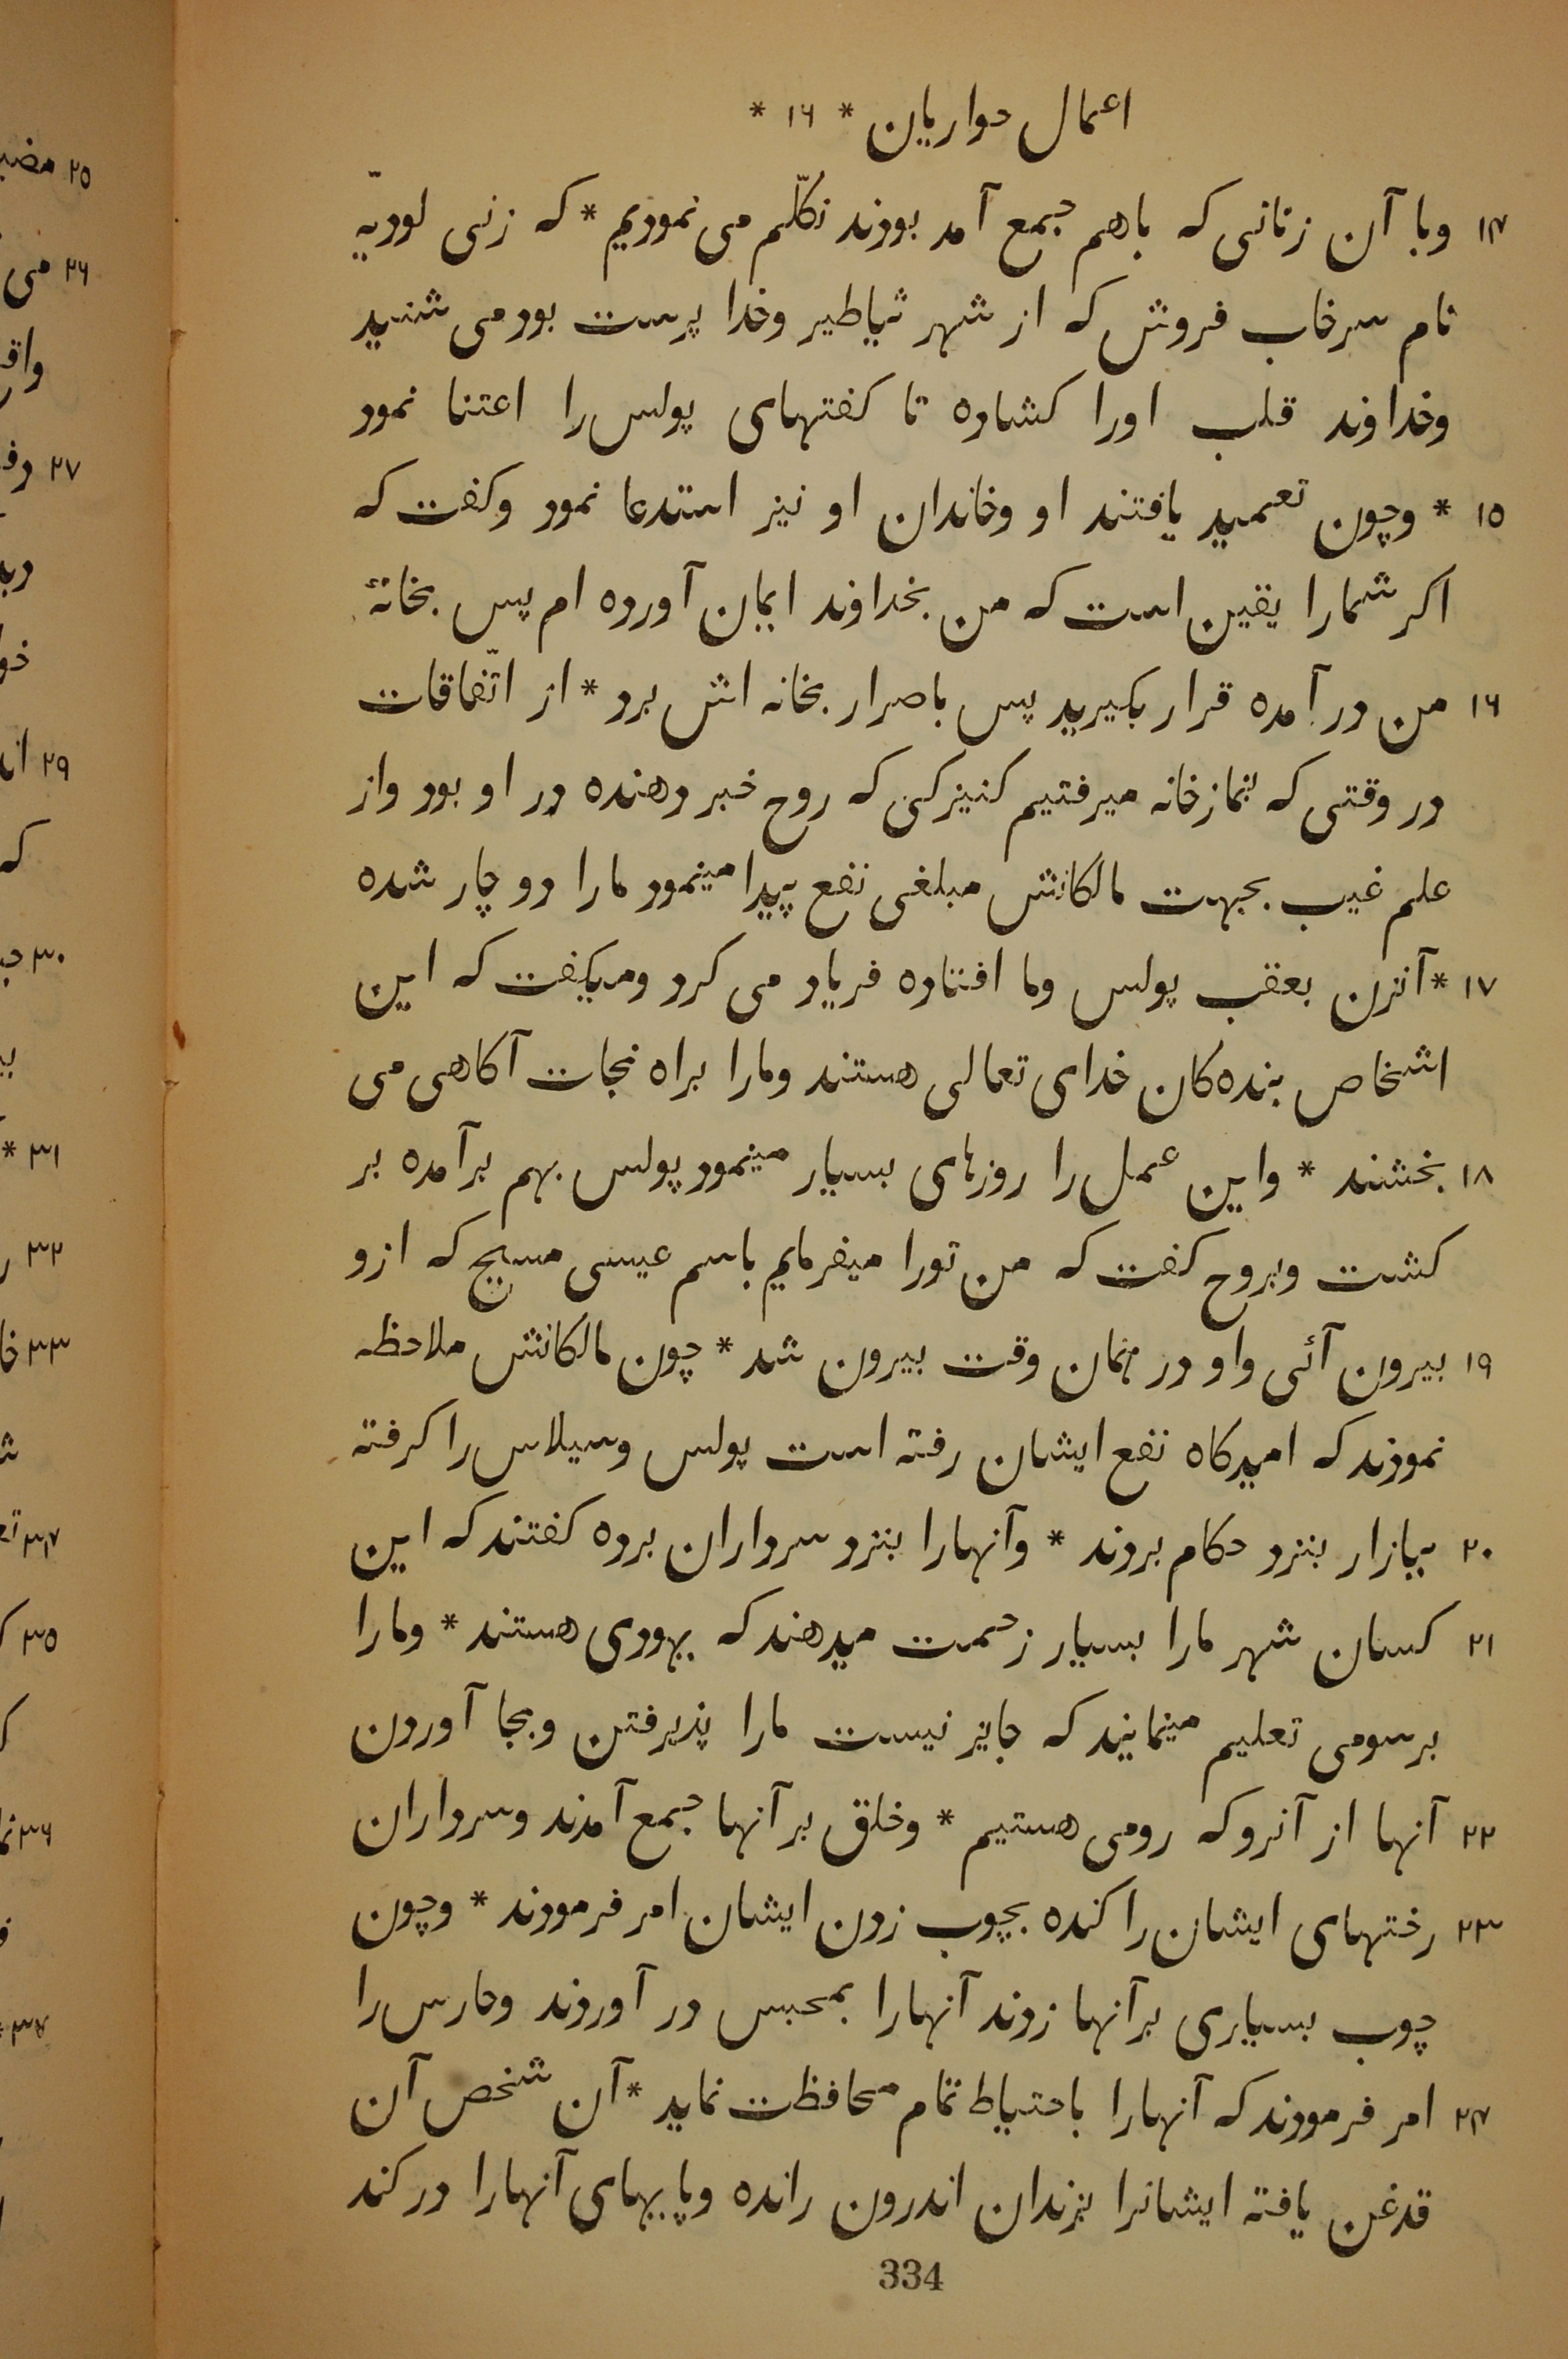 اعمال حواریان * ۱۶ *
۱۴ وبا آن زنانی که باهم جمع آمد بودند تکلّم می نمودیم * که زنی لودیّه
نام سرخاب فروش که از شهر ثیاطیر وخدا پرست بود می شنید
وخداوند قلب اورا کشاده تا کفتهای پولس را اعتنا نمود
۱۵ * وچون تعمید یافتند او وخاندان او نیز استدعا نمود وکفت که
اکر شمارا یقین است که من بخداوند ایمان آورده ام پس بخانهٔ
۱۶ من در آمده قرار بکیرید پس باصرار بخانه اش برد * از اتّفاقات
در وقتی که بنمازخانه میرفتیم کنیزکی که روح خبر دهنده در او بود واز
علم غیب بجهت مالکانش مبلغی نفع پیدا مینمود مارا دو چار شده
۱۷ * آنزن بعقب پولس وما افتاده فریاد می کرد ومیکفت که این
اشخاص بنده کان خدای تعالی هستند ومارا براه نجات آکاهی می
۱۸ بخشند * واین عمل را روزهای بسیار مینمود پولس بهم برآمده بر
کشت وبروح کفت که من تورا میفرمایم باسم عیسی مسیح که ازو
۱۹ بیرون آئی واو در همان وقت بیرون شد * چون مالکانش ملاحظه
نمودند که امیدکاه نفع ایشان رفته است پولس وسیلاس را کرفته
۲۰ ببازار بنزد حکام بردند * وآنهارا بنزد سرداران برده کفتند که این
۲۱ کسان شهر مارا بسیار زحمت میدهند که یهودی هستند * ومارا
برسومی تعلیم مینمایند که جایز نیست مارا پذیرفتن وبجا آوردن
۲۲ آنها از آنرو که رومی هستیم * وخلق بر آنها جمع آمدند وسرداران
۲۳ رختهای ایشان را کنده بچوب زدن ایشان امر فرمودند * وچون
چوب بسیاری بر آنها زدند آنهارا بمحبس در آوردند وحارس را
۲۴ امر فرمودند که آنهارا باحتیاط تمام محافظت نماید * آن شخص آن
قدغن یافته ایشانرا بزندان اندرون رانده وپایهای آنهارا در کند
334
۲۵
۲۶ می
۲۷
۲۹
که
۳۰
۳۱ *
۳۲
۳۳
۳۴
۳۵
۳۶